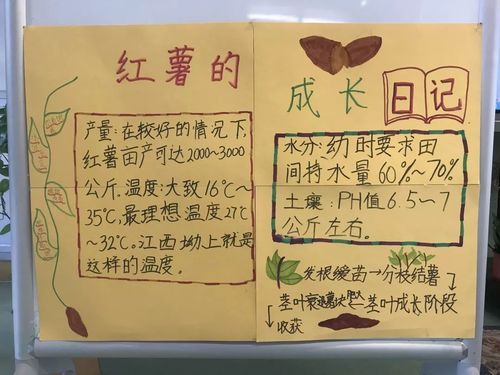 红薯的
产量:在较好的情况下,
红薯亩产可达2000~3000
公斤.温度:大致16℃~
35℃.最理想温度27℃
~32℃。江西坳上就是
这样的温度。
成长日记
水分:幼时要求田
间持水量60%~70%
土壤:PH值6.5~7
公斤左右。
发根缓苗→分枝结薯
茎叶衰退薯块 茎叶成长阶段
收获